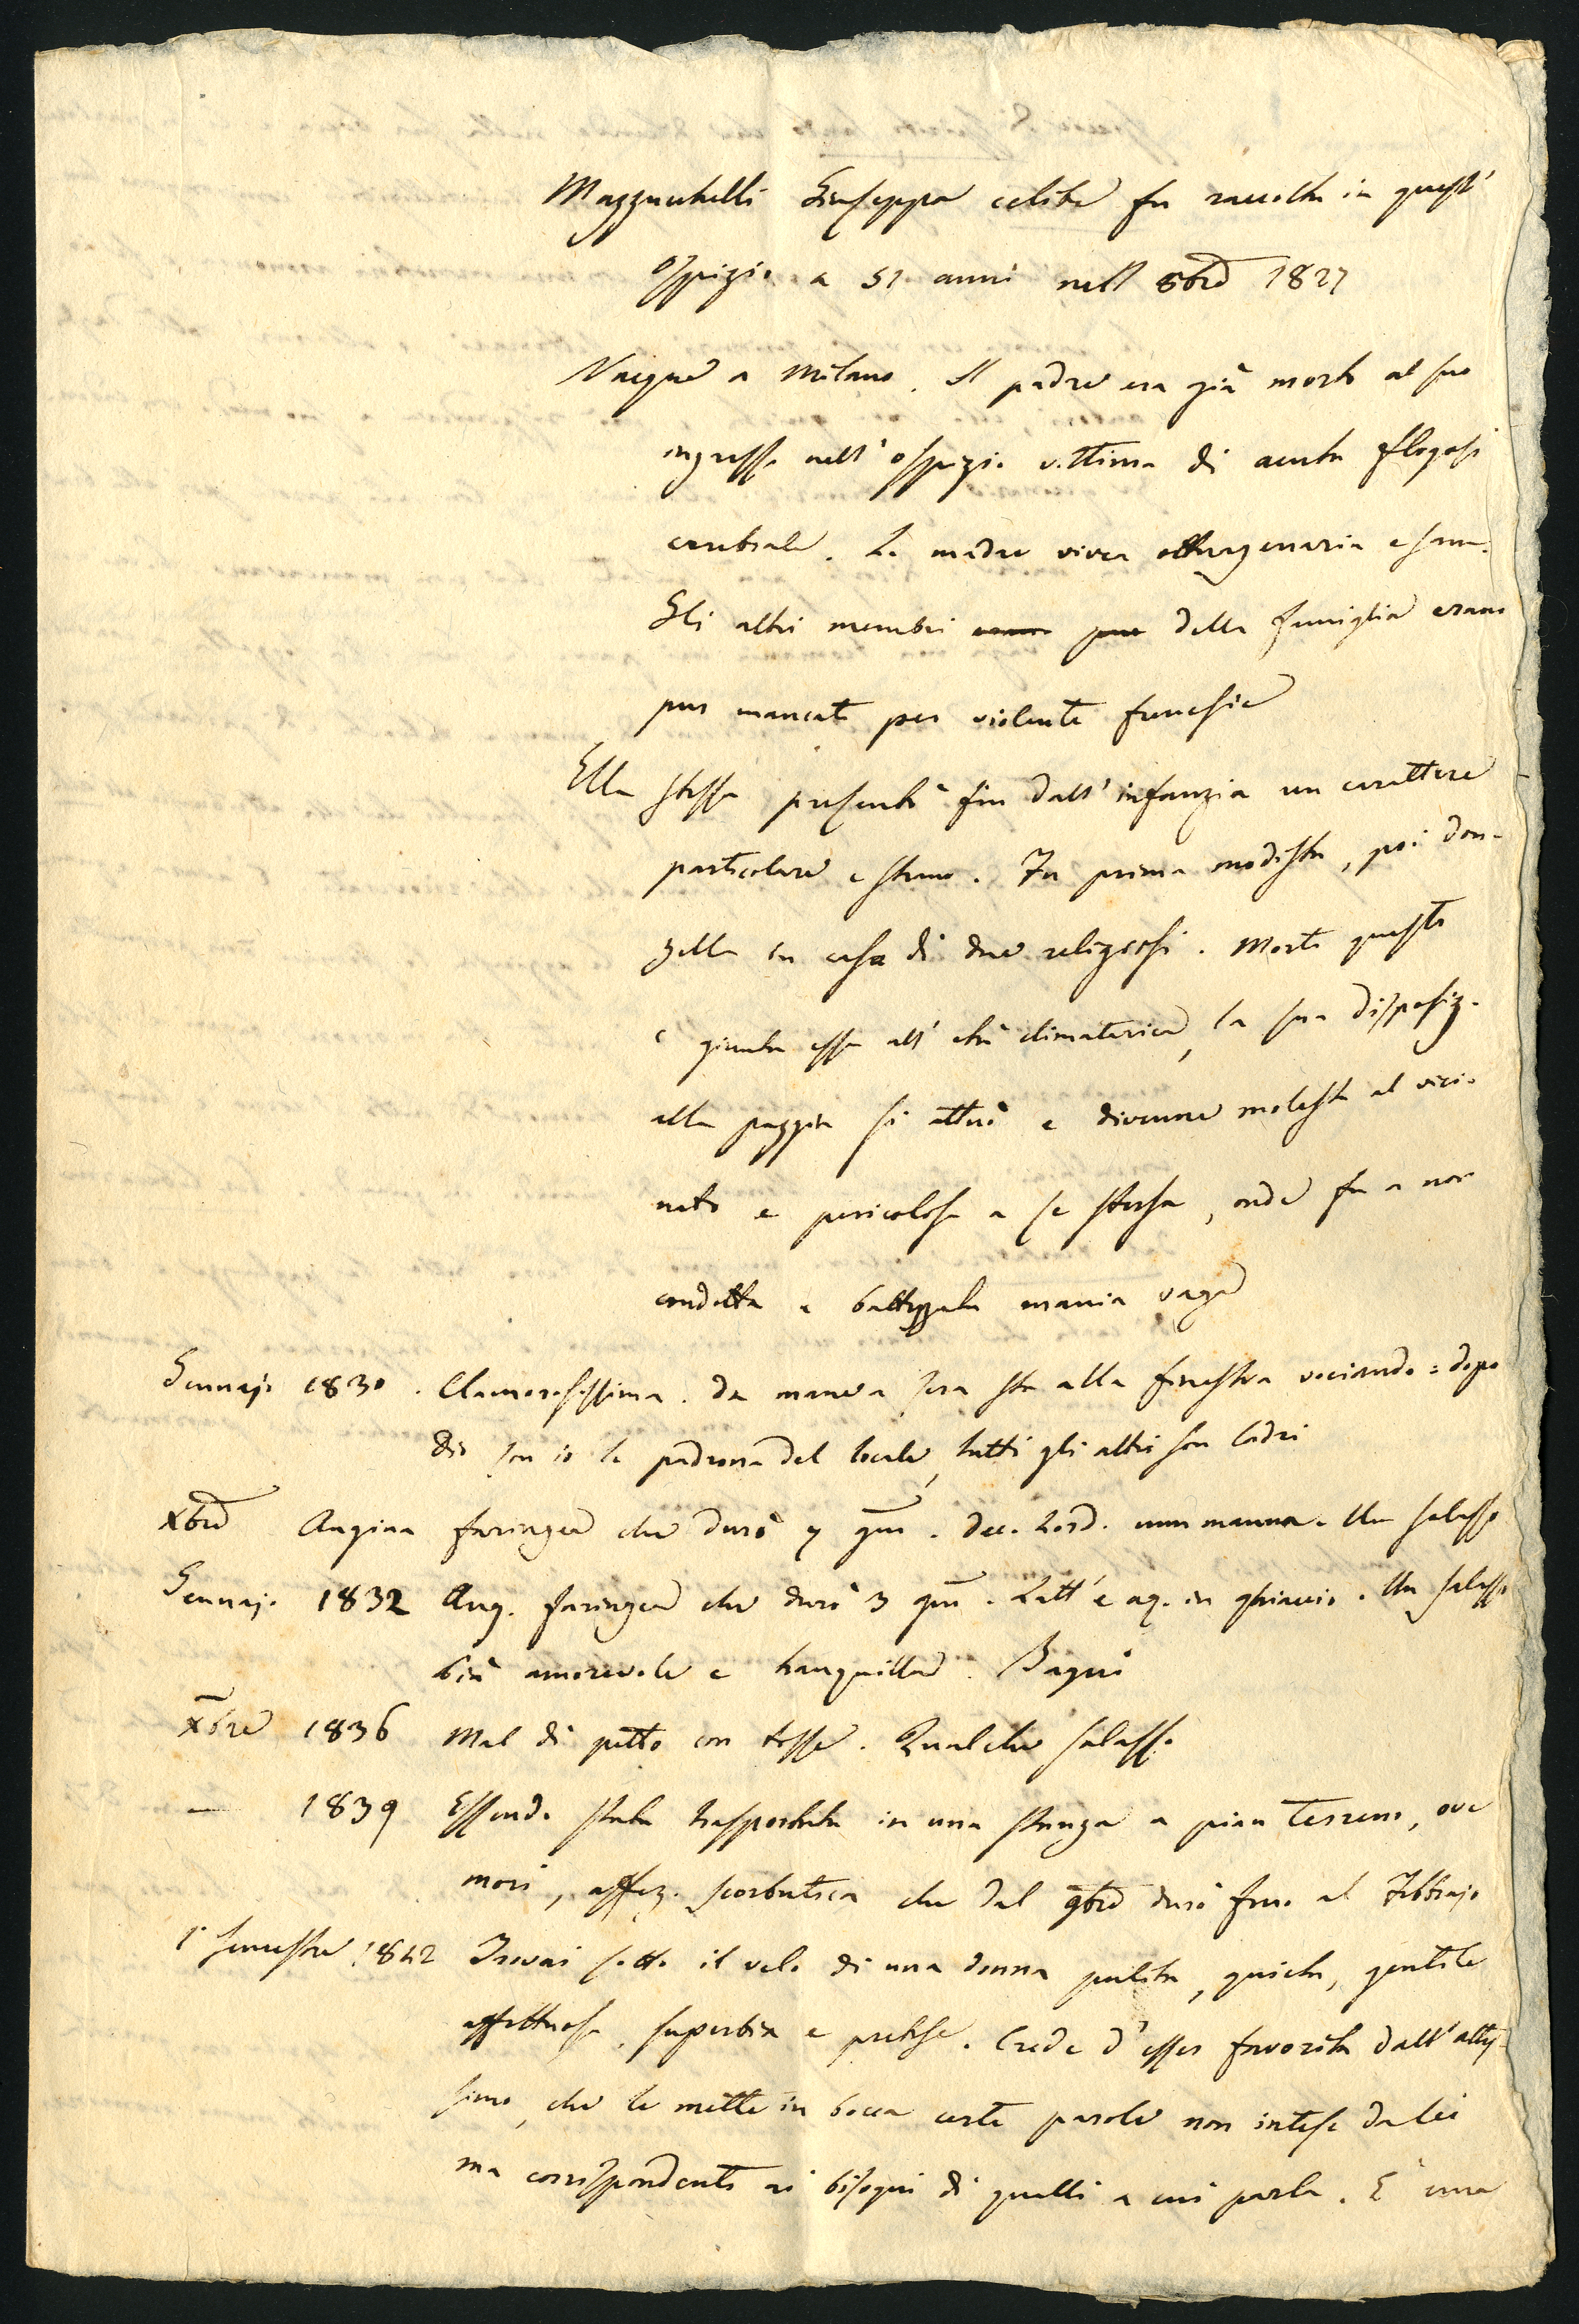 Mazzucchelli Giuseppa celibe fu raccolta in quest'
ospizio a 51 anni nell 8bre 1827
Nacque a Milano. Il padre era già morto al suo
ingresso nell'ospizio vittima di acuta flogosi
cerebrale. La madre vivea ottuagenaria e sana.
Gli altri membri erano pure della famiglia erano
pur mancati per violente frenesie
Ella stessa presentò fin dall'infanzia un carattere
particolare e strano. Fu prima modista, poi don-
zella in casa di due religiosi. Morti questi
e giunta essa all'età climaterica, la sua disposiz.
alla pazzia si attuò e divenne molesta al vici-
nato e pericolosa a se stessa, onde fu a noi
condotta e battezzata mania vaga
Gennajo 1830. Clamorosissima. Da mane a sera sta alla finestra vociando = dopo
Dio son io la padrona del locale, tutti gli altri son ladri
Xbre Angina faringea che durò 7 gni. Dec. Lord. cum manna. Un salasso
Gennajo 1832 Ang. faringea che durò 3 gni. Latt'e aq. in ghiaccio. Un salasso
più amorevole e tranquilla. Bagni
Xbre 1836 Mal di petto con tosse. Qualche salasso
— 1839 Essendo stata trasportata in una stanza a pian terreno, ove
morì, affez. scorbutica che dal 9bre durò fino al Febbrajo
1° semestre 1842 Trovai sotto il velo di una donna pulita, quieta, gentile
affettuosa, superbia e pretese. Crede d'esser favorita dall'altis-
simo, che le mette in bocca certe parole non intese da lei
ma corrispondenti ai bisogni di quelli a cui parla. È una